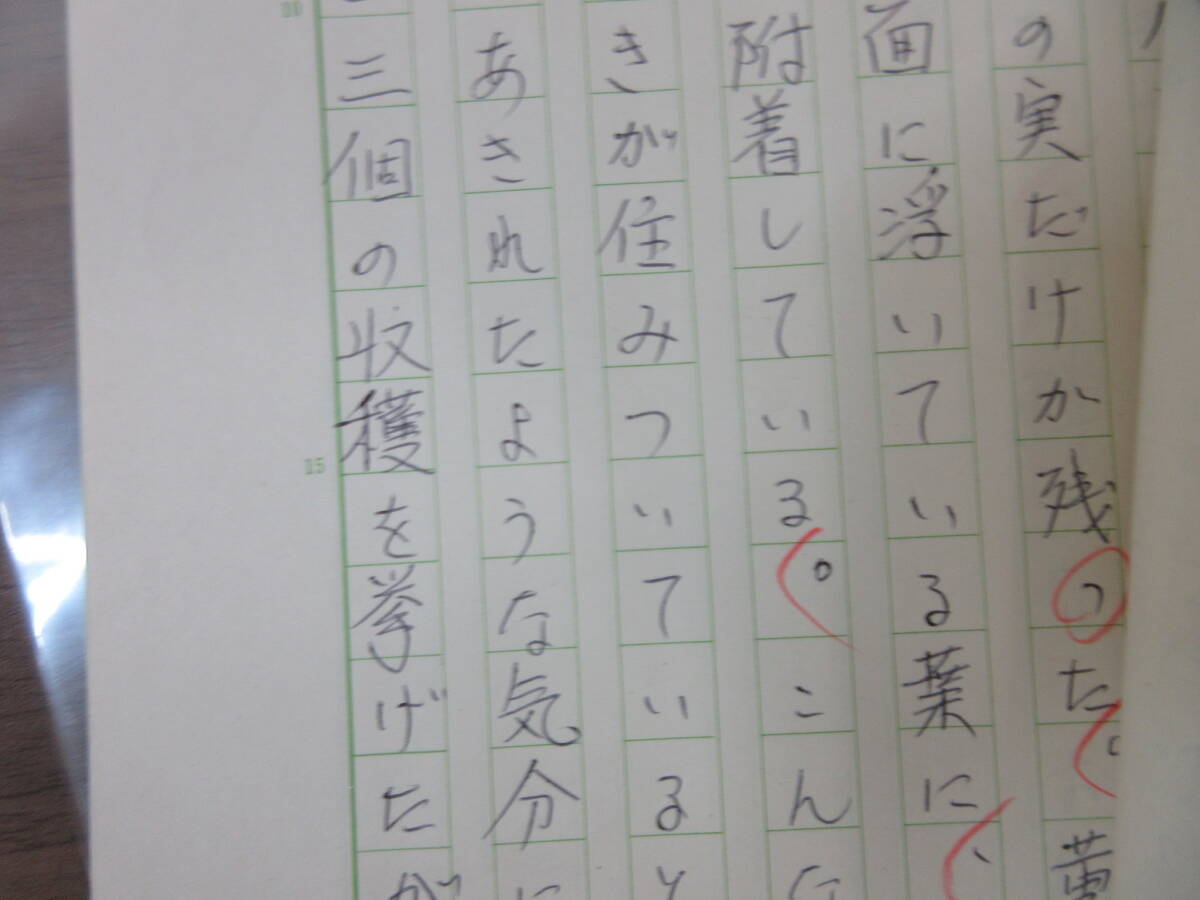 の実だけが残った。黄
面に浮いている葉に、
附着している。こんな
きが住みついていると
あきれたような気分に
三個の収穫を挙げたが
15